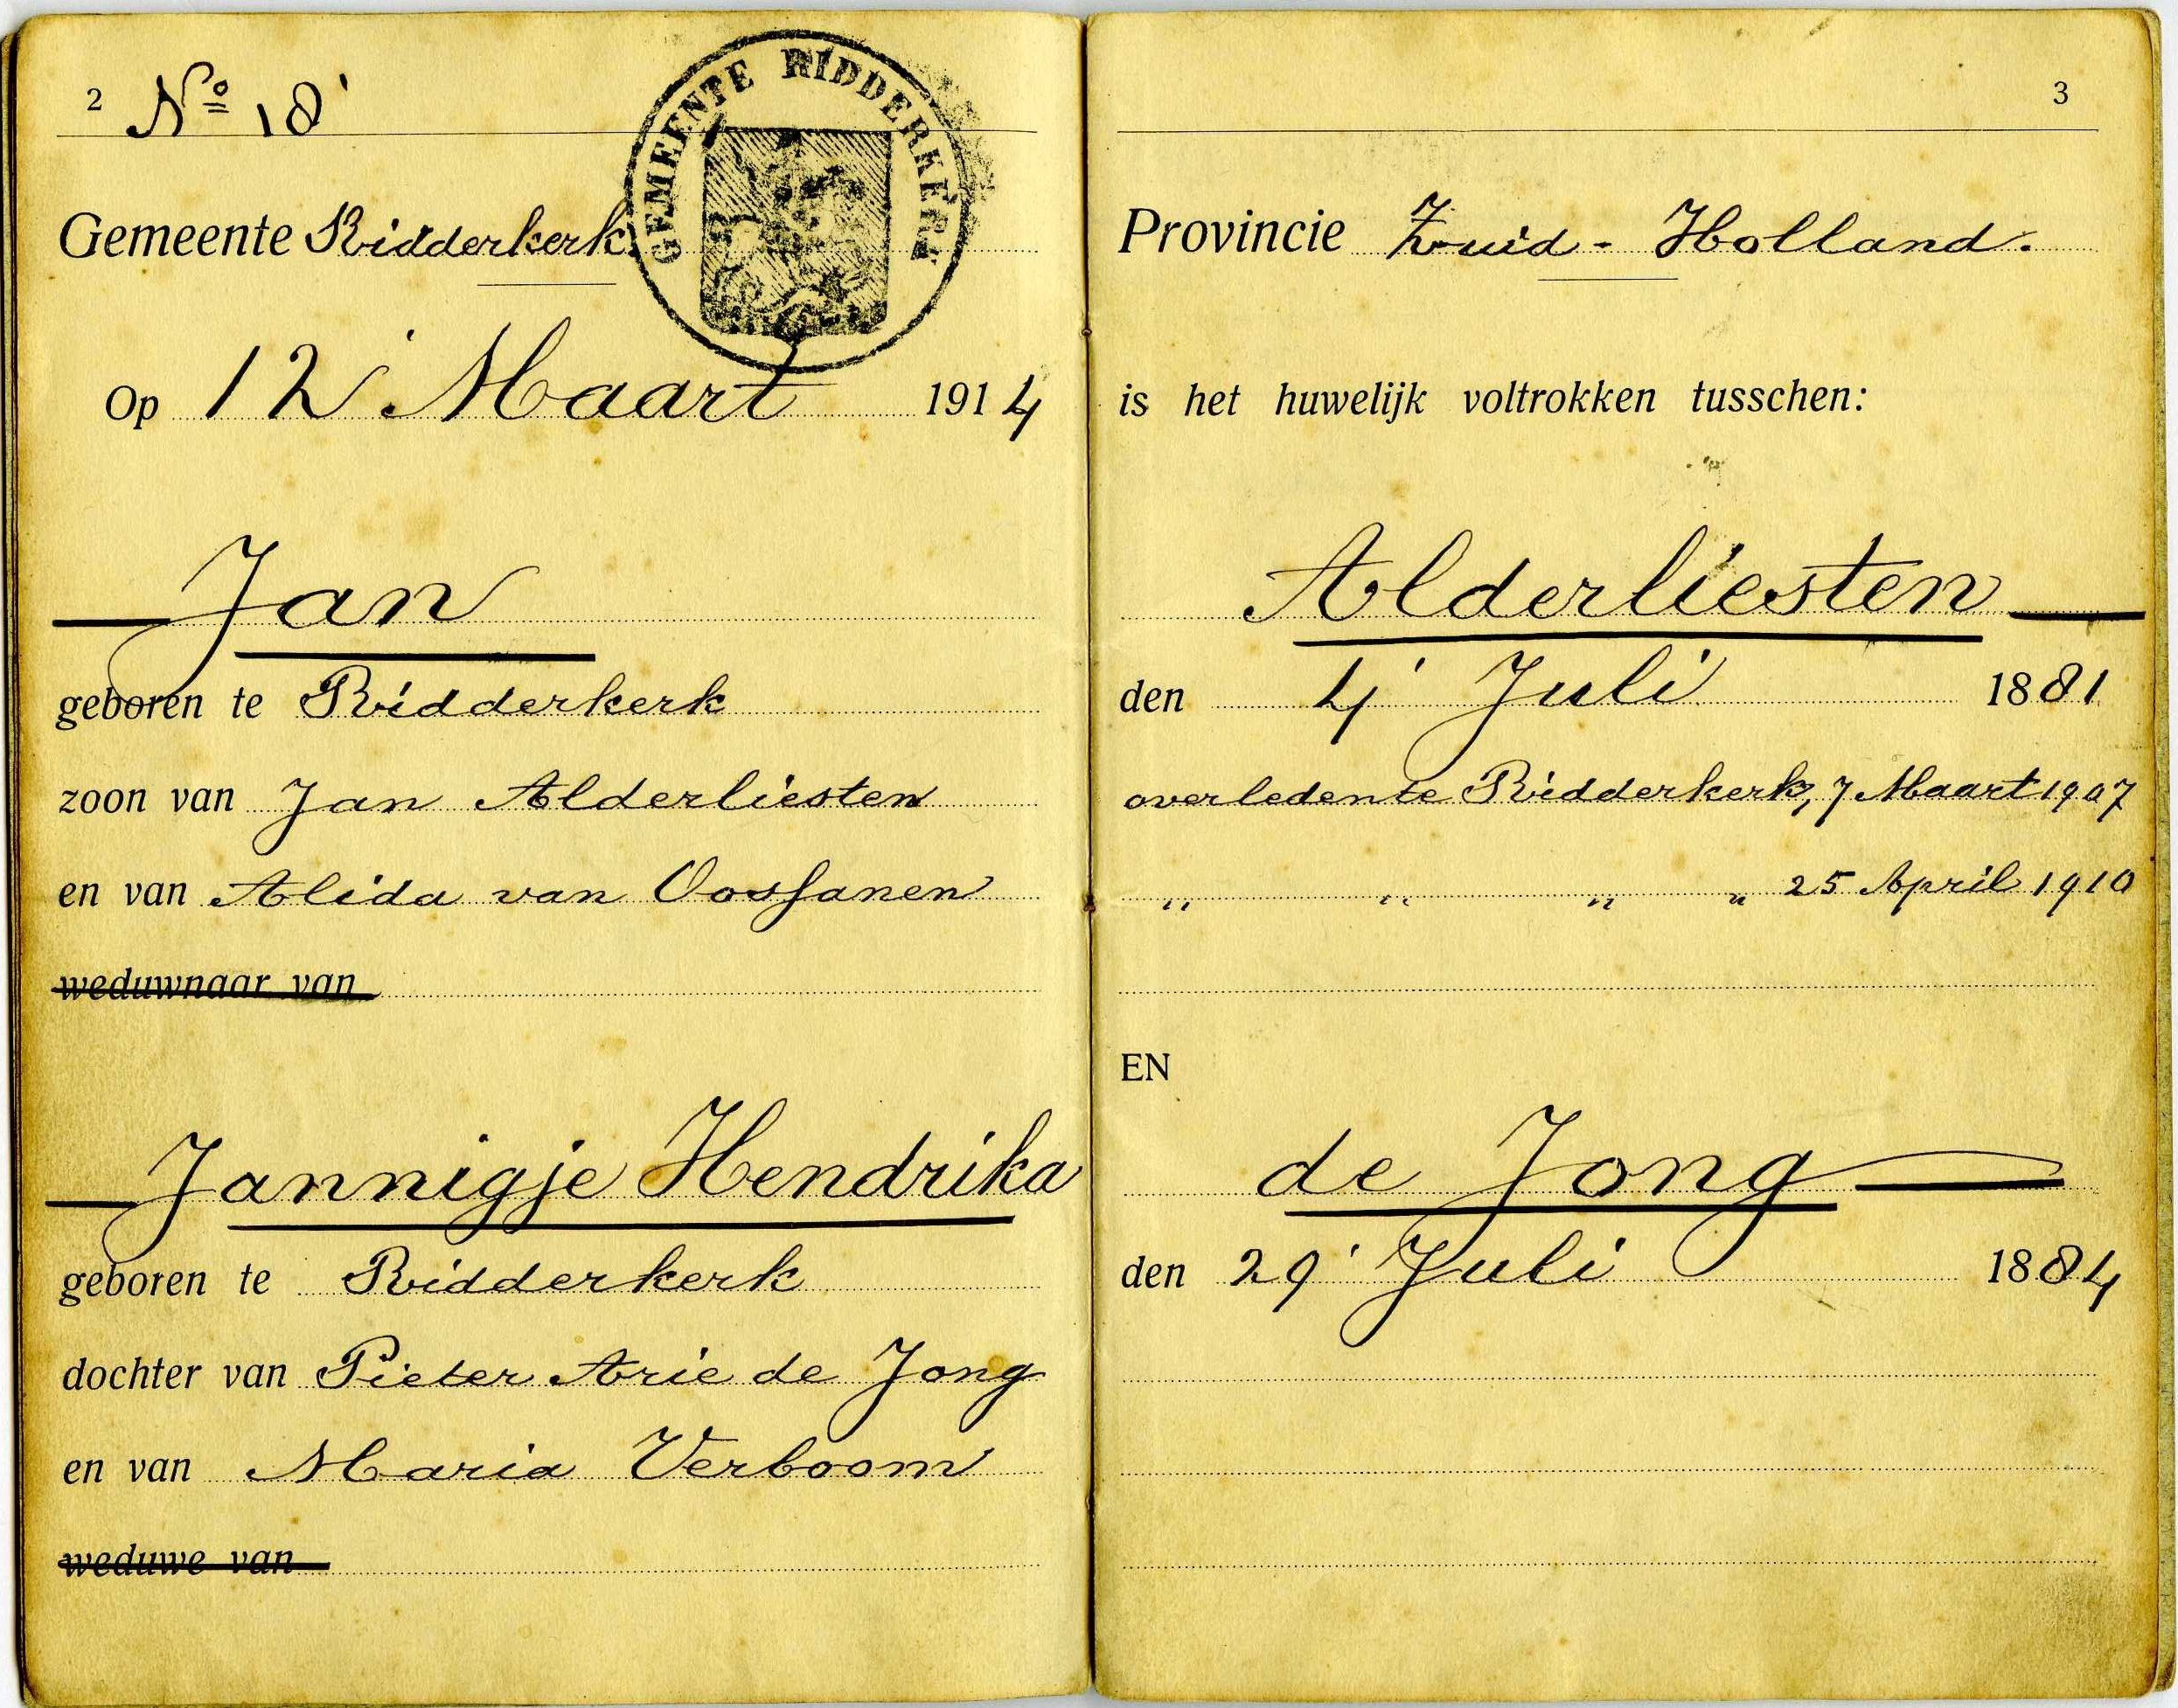 2 No 18
GEMEENTE RIDDERKERK
Gemeente Ridderkerk
Op 12 Maart 1914
Jan
geboren te Ridderkerk
zoon van Jan Alderliesten
en van Alida van Oossanen
weduwnaar van
Jannigje Hendrika
geboren te Ridderkerk
dochter van Pieter Arie de Jong
en van Maria Verboom
weduwe van
3
Provincie Zuid-Holland.
is het huwelijk voltrokken tusschen:
Alderliesten
den 4 Juli 1881
overleden te Ridderkerk, 7 Maart 1907
" " " " 25 April 1910
EN
de Jong
den 29 Juli 1884